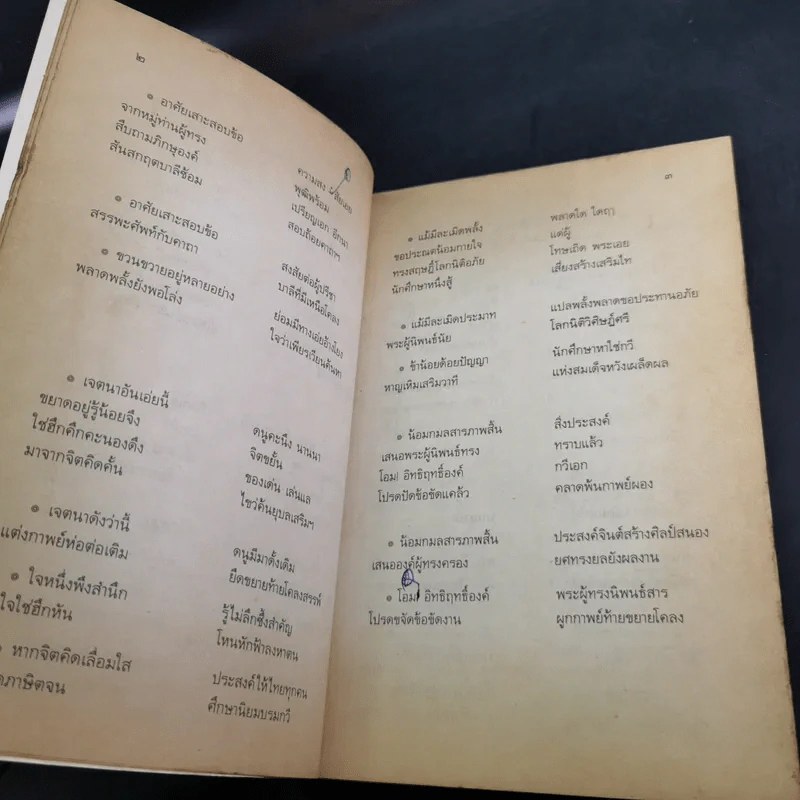 ๒
๏ อาศัยเสาะสอบข้อ ความสง
จากหมู่ท่านผู้ทรง พุฒิพร้อม
สืบถามภิกษุองค์ เปรียญเอก อีกนา
สันสกฤตบาลีซ้อม สอบถ้อยคาถาฯ
๏ อาศัยเสาะสอบข้อ สงสัยต่อผู้ปรีชา
สรรพะศัพท์กับคาถา บาลีที่มีเหนือโคลง
๏ ขวนขวายอยู่หลายอย่าง ย่อมมีทางเอ่ยอ้างโยง
พลาดพลั้งยังพอโล่ง ใจว่าเพียรเวียนค้นหา
๏ เจตนาอันเอ่ยนี้ ดนูคะนึง นานนา
ขยาดอยู่รู้น้อยจึง จิตขยั้น
ใช่ฮึกคึกคะนองดึง ของเด่น เล่นแล
มาจากจิตคิดคั้น ไขว่ค้นยุบลเสริมฯ
๏ เจตนาดังว่านี้ ดนูมีมาดั้งเดิม
แต่งกาพย์ห่อต่อเติม ยืดขยายท้ายโคลงสรรพ์
๏ ใจหนึ่งพึงสำนึก รู้ไม่ลึกซึ้งสำคัญ
ใจใช่ฮึกหัน โหนหักฟ้าลงหาตน
หากจิตคิดเลื่อมใส ประสงค์ให้ไทยทุกคน
ภาษิตจน ศึกษานิยมบรมกวี
๓
๏ แม้มีละเมิดพลั้ง พลาดใด ใดฤๅ
ขอประณตน้อมกายใจ แด่ผู้
ทรงสฤษฎิ์โลกนิติอภัย โทษเถิด พระเอย
นักศึกษาหนึ่งสู้ เสี่ยงสร้างเสริมไท
๏ แม้มีละเมิดประมาท แปลพลั้งพลาดขอประทานอภัย
พระผู้นิพนธ์นัย โลกนิติวิศิษฎ์ศรี
๏ ข้าน้อยด้อยปัญญา นักศึกษาหาใช่กวี
หาญเหิมเสริมวาที แห่งสมเด็จหวังเผล็ดผล
๏ น้อมกมลสารภาพสิ้น สิ่งประสงค์
เสนอพระผู้นิพนธ์ทรง ทราบแล้ว
โอม! อิทธิฤทธิ์องค์ กวีเอก
โปรดปัดข้อขัดแคล้ว คลาดพ้นกาพย์ผอง
๏ น้อมกมลสารภาพสิ้น ประสงค์จินต์สร้างศิลป์สนอง
เสนอองค์ผู้ทรงครอง ยศทรงยลยังผลงาน
๏ โอม! อิทธิฤทธิ์องค์ พระผู้ทรงนิพนธ์สาร
โปรดขจัดข้อขัดงาน ผูกกาพย์ท้ายขยายโคลง